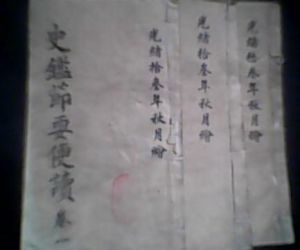 光緒拾叁年秋月繪
光緒拾叁年秋月繪
光緒拾叁年秋月繪
史鑑節要便讀 卷一